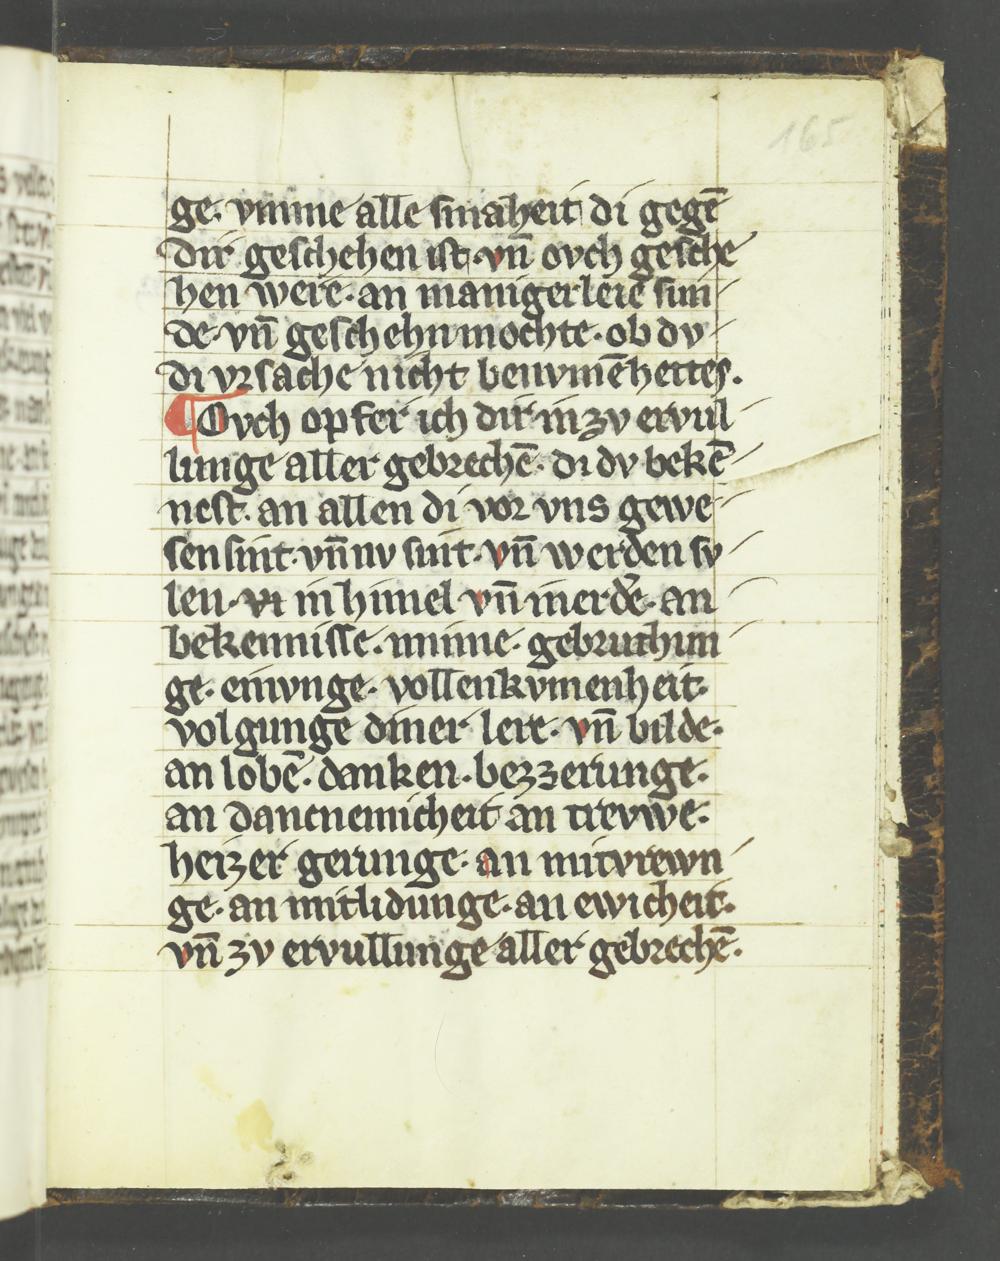 165
ge. vmme alle smaheit di gegē
dir geschehen ist. vn̄ ovch gesche
hen were. an manigerleie sun
de. vn̄ geschehn mochte. ob dv
di vrsache nicht benvmē hettes.
¶ Ovch opfer ich dir in zv ervul
lunge aller gebrechē. di dv bekē
nest. an allen di vor vns gewe
sen sint. vn̄ nv sint. vn̄ werden sv
len. in himel vn̄ in erdē. an
bekennisse. minne. gebruchun
ge. einvnge. vollenkvmenheit.
volgunge diner lere. vn̄ bilde.
an lobē. danken. bezzerunge.
an dancnemicheit an trevwe.
heizer gerunge. an mitvrewn
ge. an mitlidunge. an ewicheit.
vn̄ zv ervullunge aller gebrechē.